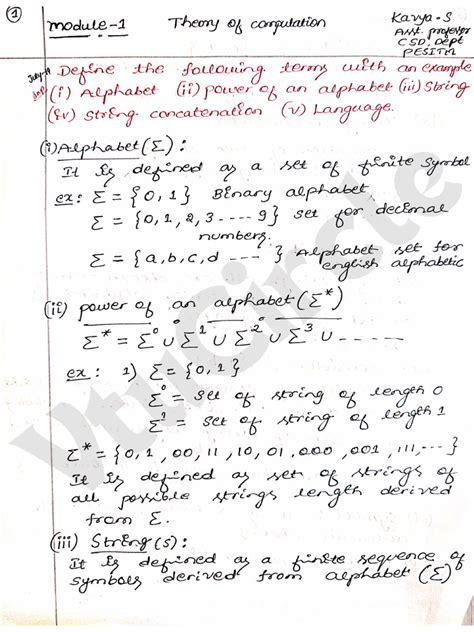 1
Module-1 Theory of computation
Kavya-S
Asst. professor
CSD, Dept
PESITM
Define the following terms with an example
(i) Alphabet (ii) power of an alphabet (iii) String
(iv) String concatenation (v) Language.
(i) Alphabet (Σ) :
It is defined as a set of finite symbol
ex: Σ = {0, 1} Binary alphabet
Σ = {0, 1, 2, 3 ---- 9} set for decimal
numbers.
Σ = {a, b, c, d --- } Alphabet set for
english alphabetic
(ii) power of an alphabet (Σ*)
Σ* = Σ⁰ ∪ Σ¹ ∪ Σ² ∪ Σ³ ∪ .....
ex : 1) Σ = {0, 1}
Σ⁰ = set of string of length 0
Σ¹ = set of string of length 1
Σ* = {0, 1, 00, 11, 10, 01, 000, 001, 111, ---}
It is defined as set of strings of
all possible strings length derived
from Σ.
(iii) String (s) :
It is defined as a finite sequence of
symbols derived from alphabet (Σ)
VtuCircle